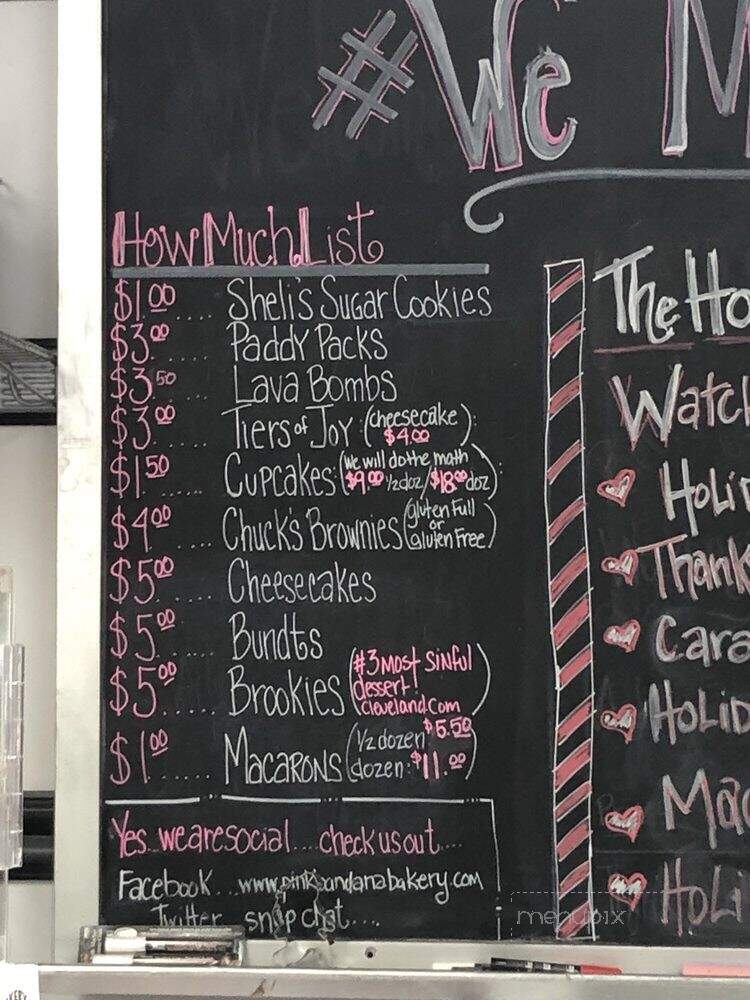 #We M
How Much List
$1.00 .... Sheli's Sugar Cookies
$3.00 ..... Paddy Packs
$3.50 ..... Lava Bombs
$3.00 ..... Tiers of Joy (cheesecake $4.00)
$1.50 ...... Cupcakes (we will do the math $9.00 1/2 doz/$18.00 doz)
$4.00 .... Chuck's Brownies (gluten Full or gluten Free)
$5.00 .... Cheesecakes
$5.00 .... Bundts
$5.00 ..... Brookies (#3 most sinful dessert! cleveland.com)
$1.00 ..... Macarons (1/2 dozen $5.50 dozen: $11.00)
Yes. we are social....check us out....
Facebook...www.pinkbandanabakery.com
Twitter snapchat....
The Ho
Watch
Holid
Thank
Cara
Holid
Mac
Holi
menupix